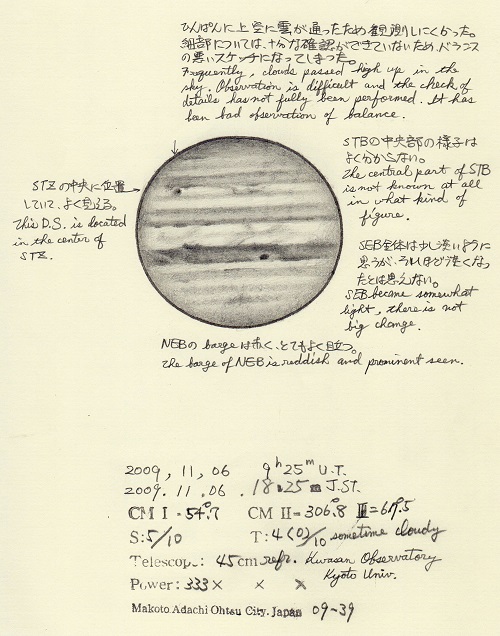 ひんぱんに上空に雲が通ったため観測しにくかった。
細部については、十分な確認ができていないため、バランス
の悪いスケッチになってしまった。
Frequently, clouds passed high up in the
sky. Observation is difficult and the check of
details has not fully been performed. It has
been bad observation of balance.
STBの中央部の様子は
よく分からない。
The central part of STB
is not known at all
in what kind of
figure.
STZの中央に位置
していて、よく見える。
This D.S. is located
in the center of
STZ.
SEB全体は少し淡いように
思うが、それほど淡くなっ
たとは思えない。
SEB became somewhat
light, there is not
big change.
NEBのbargeは赤く、とてもよく目立つ。
the barge of NEB is reddish and prominent seen.
2009, 11, 06 9h25m U.T.
2009. 11. 06. 18 25 J.S.T.
CM I = 54.7 CM II = 306.8 III =
S: 5/10 T: 4(0)/10 sometime cloudy
Telescope: 45cm refr. Kwasan Observatory
Kyoto Univ.
Power: 333× × ×
Makoto Adachi Ohtsu City. Japan 09-39